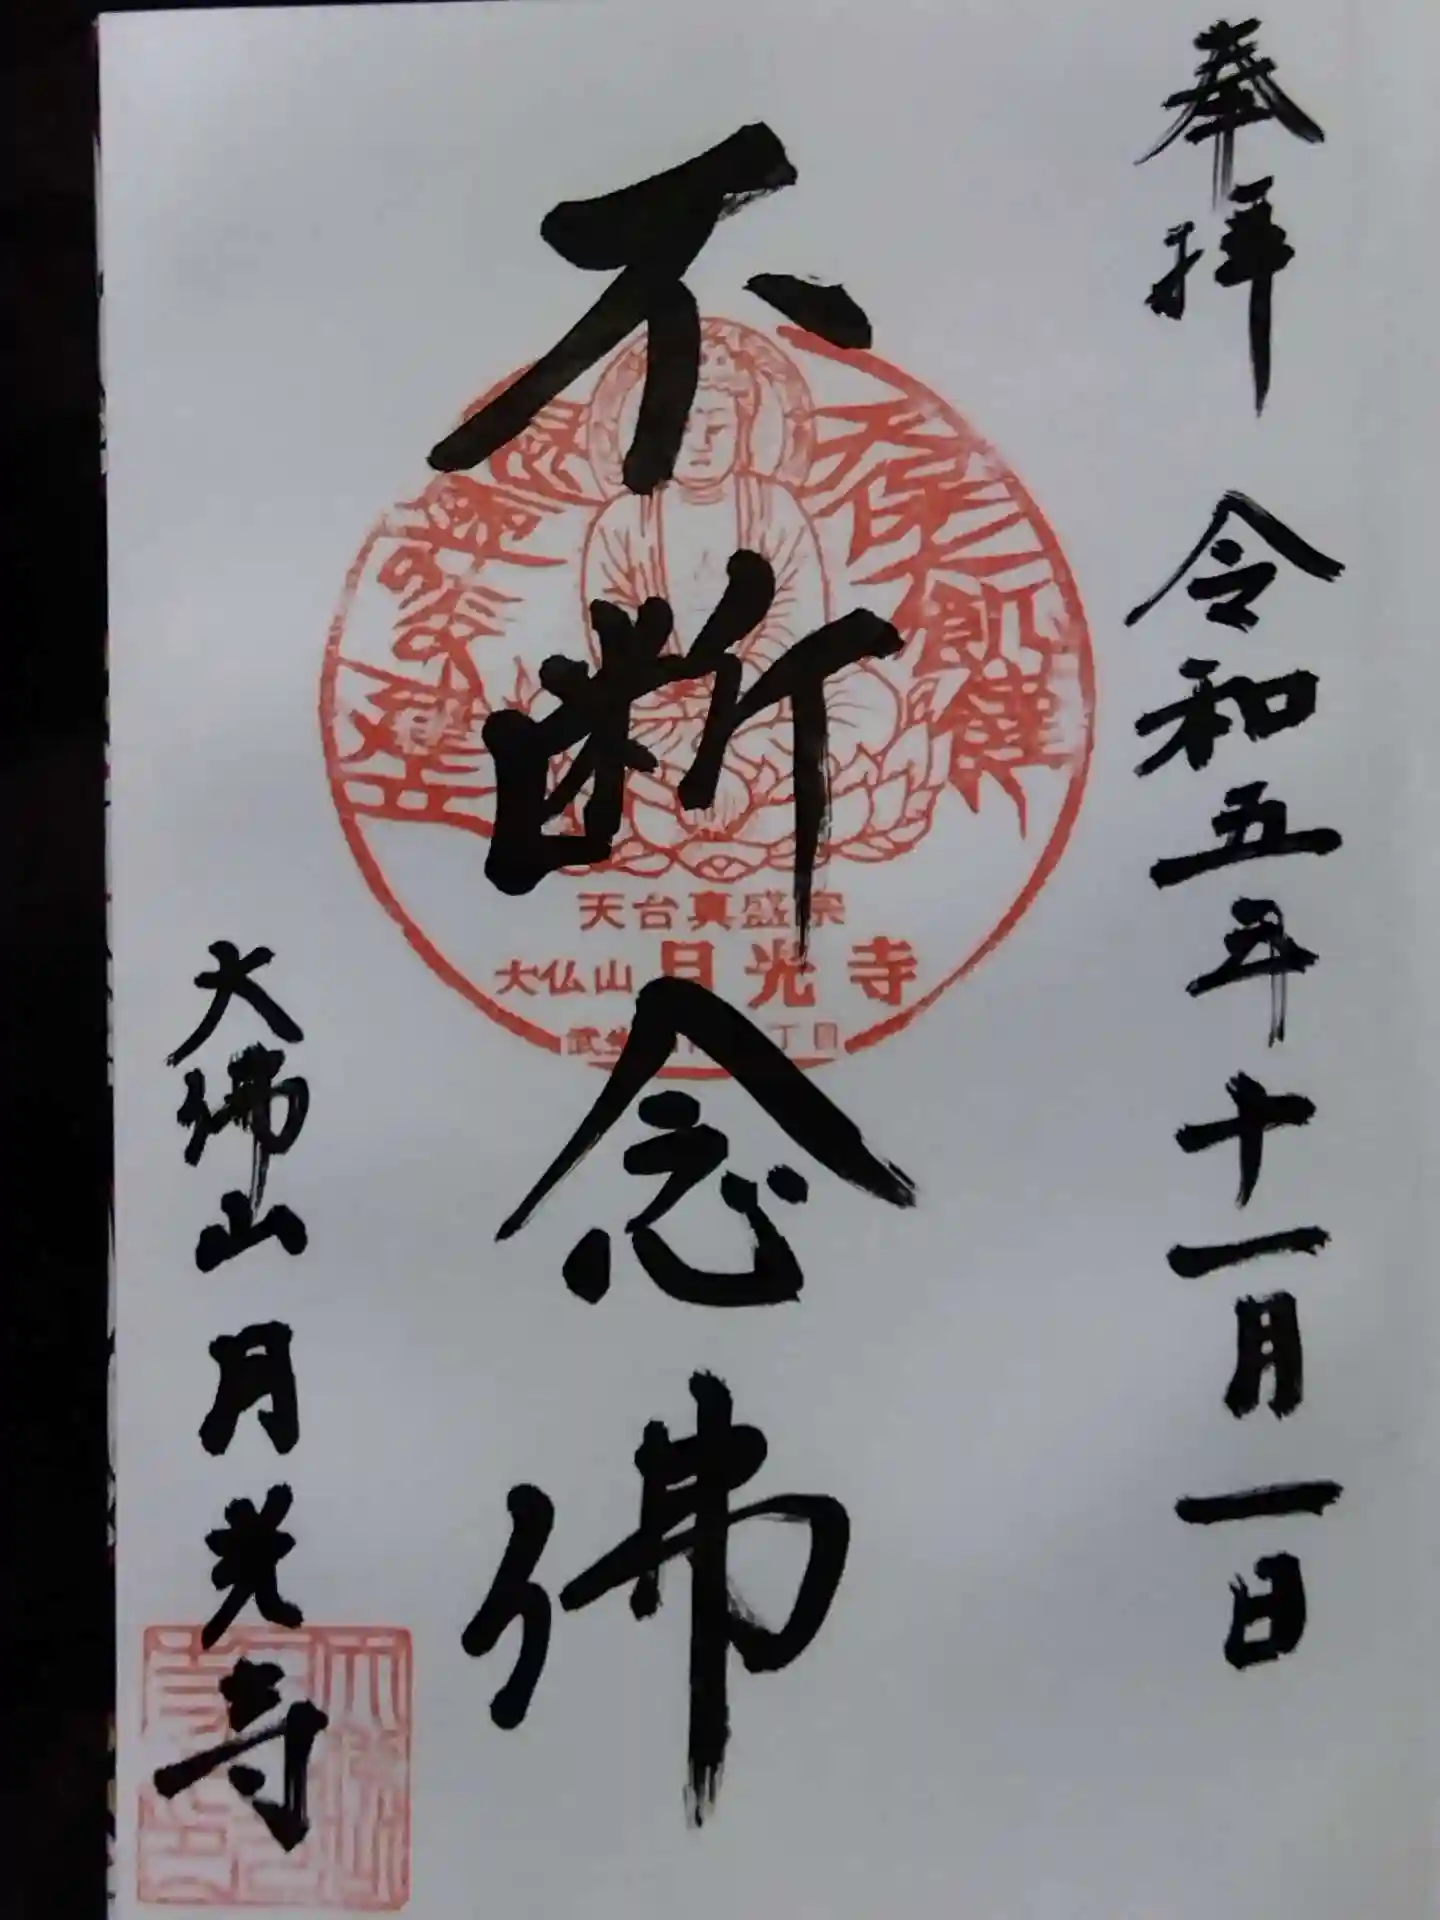 奉拝 令和五年十一月一日
不断念佛
天保三
飢饉
建
天台真盛宗
大仏山 月光寺
丁目
大佛山 月光寺